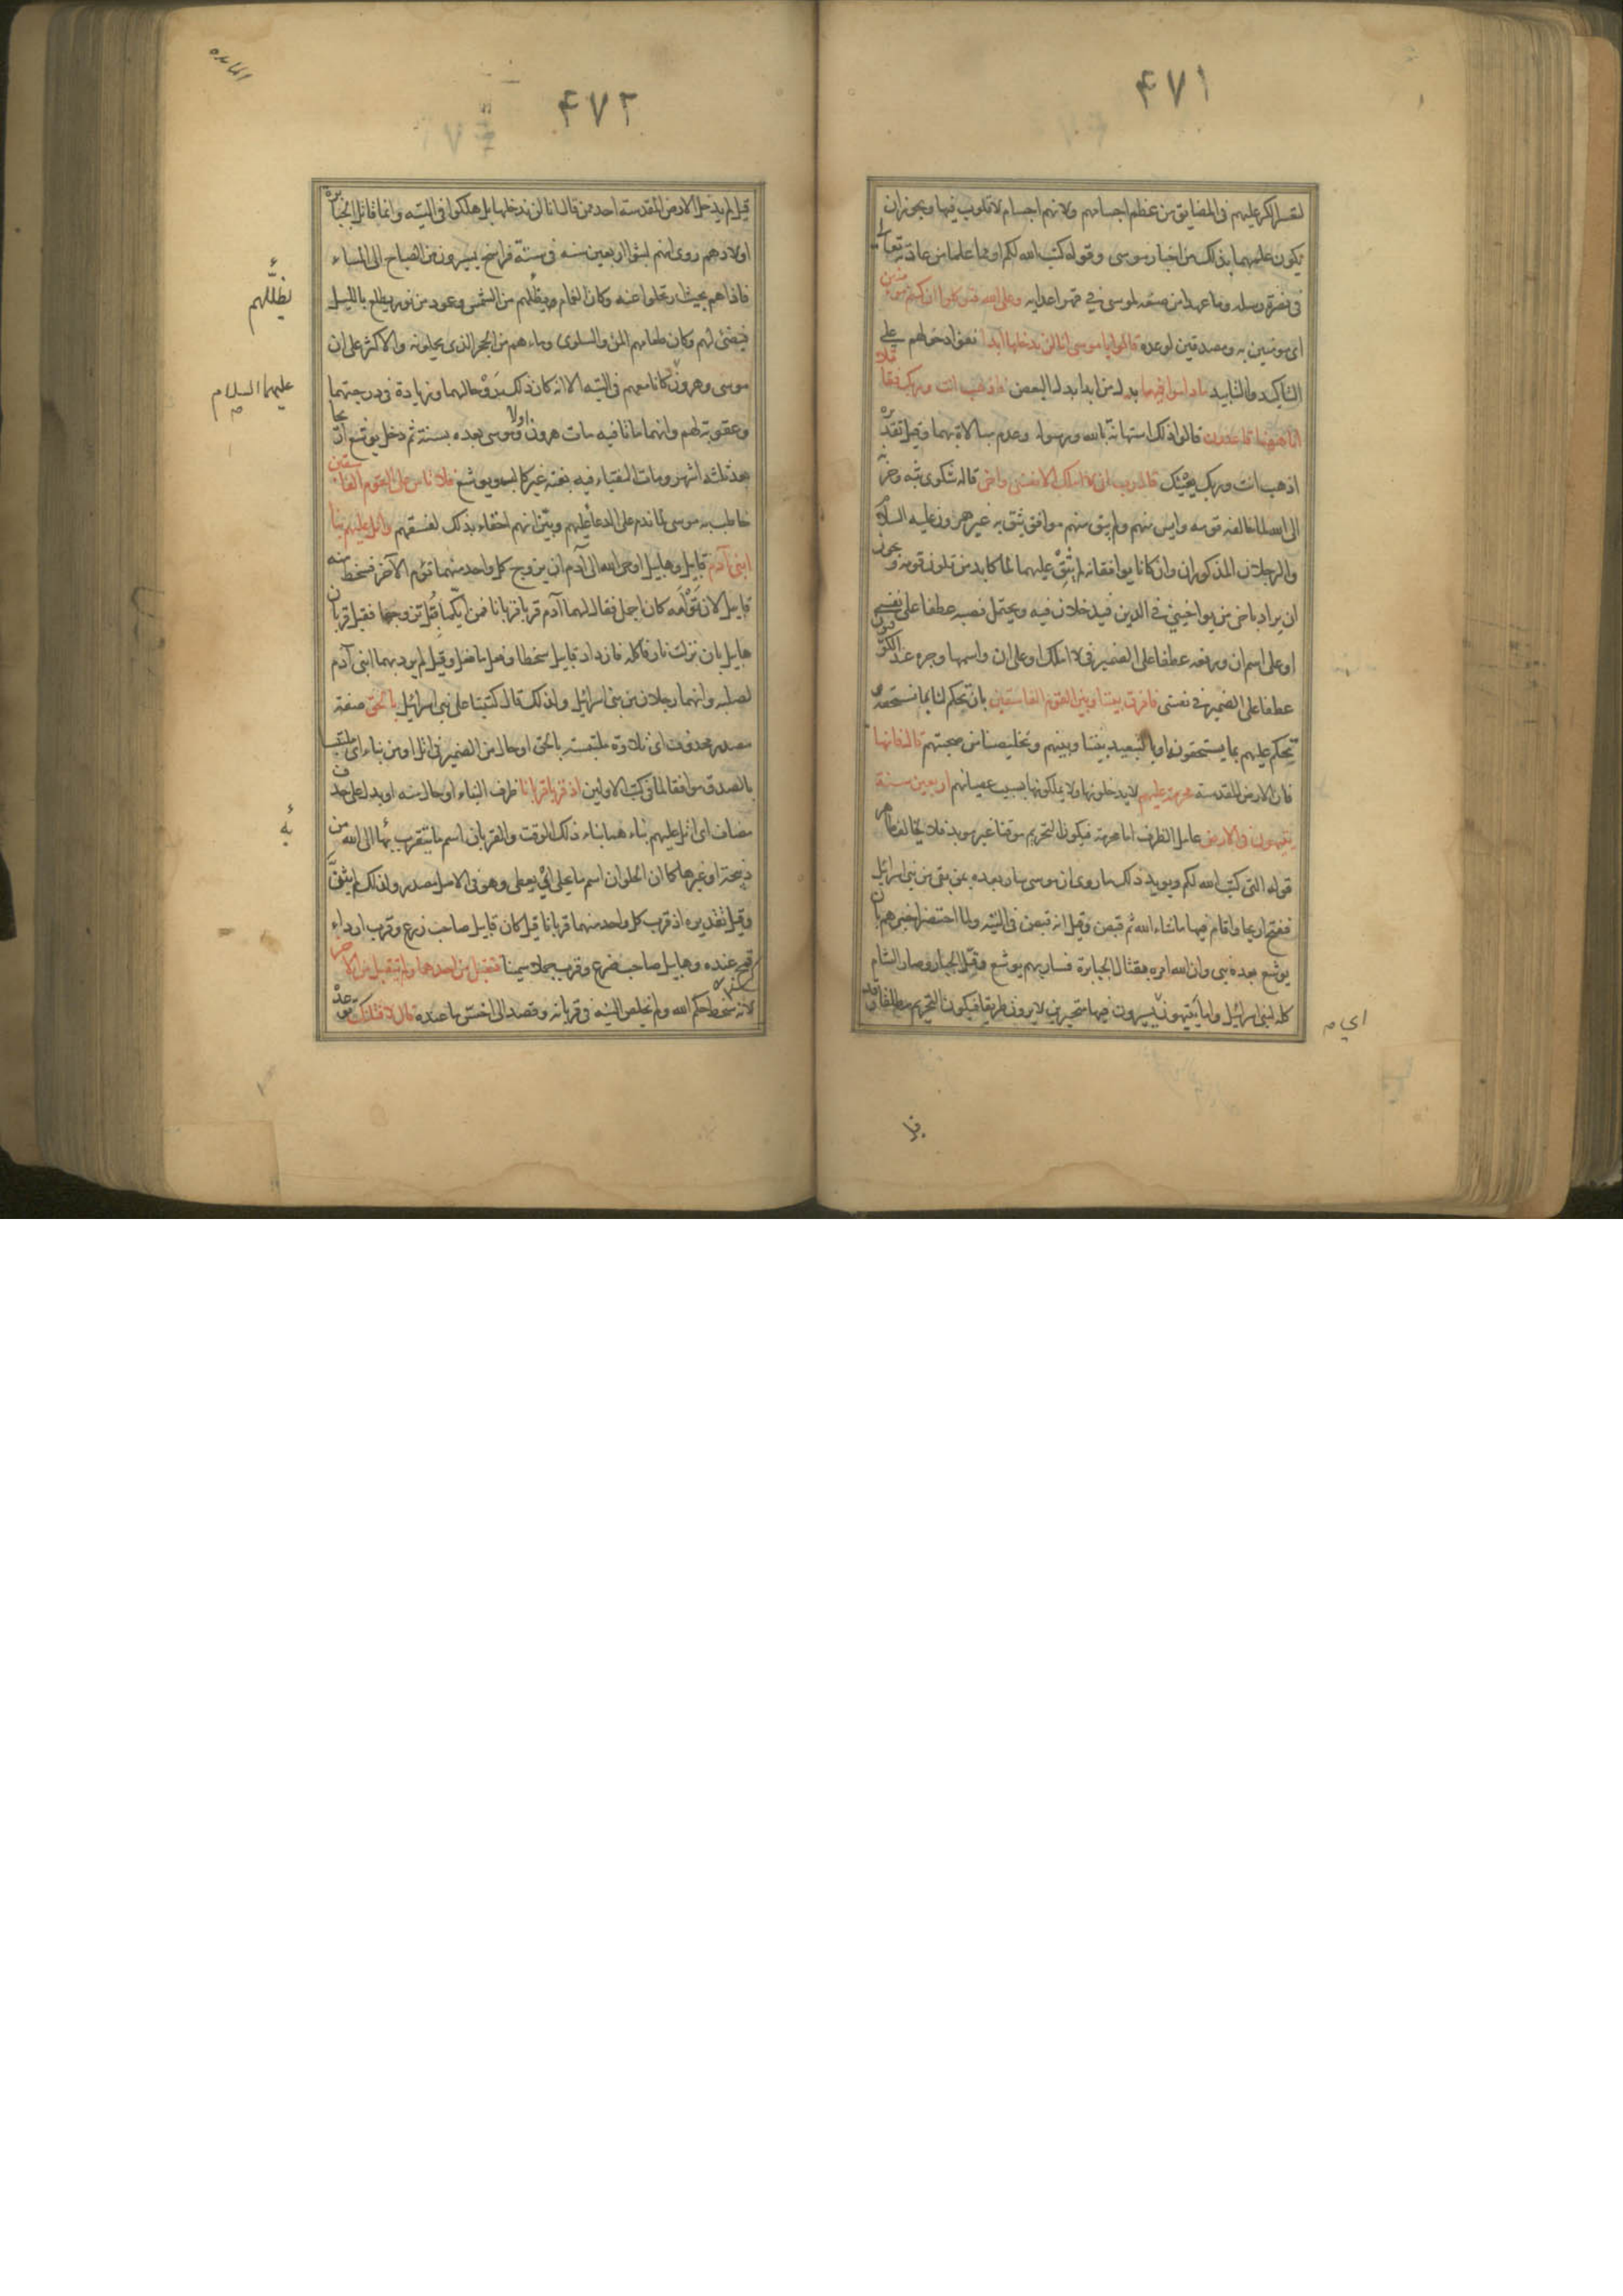 ٤٧١
لتعسر الكر عليهم فى المضايق من عظم اجسامهم ولانهم اجسام لا قلوب فيها ويجوز ان
يكون علمهما بذلك من اخبار موسى وقوله كتب الله لكم او مما علما من عادته تعالى
فى نصرة رسله وما عهدا من صنعه لموسى فى قهر اعدائه وعلى الله فتوكلوا ان كنتم مؤمنين
اى مؤمنين به ومصدقين لوعده قالوا يا موسى انا لن ندخلها ابدا نفوا دخولهم على
التاكيد والتابيد ما داموا فيها بدل من ابدا بدل البعض فاذهب انت وربك فقاتلا
انا ههنا قاعدون قالوا ذلك استهانة بالله ورسوله وعدم مبالاة بهما وقيل تقديره
اذهب انت وربك يعينك قال رب انى لا املك الا نفسى واخى قاله شكوى بثه وحزنه
الى الله لما خالفه قومه وايس منهم ولم يبق منهم موافق يثق به غير هرون عليه السلام
والرجلان المذكوران وان كانا يوافقانه لم يثق عليهما لما كابد من تلون قومه ويجوز
ان يراد باخى من يواخينى فى الدين فيدخلان فيه ويحتمل نصبه عطفا على نفسى
او على اسم ان ورفعه عطفا على الضمير فى لا املك او على ان واسمها وجره عند الكوفيون
عطفا على الضمير فى نفسى فافرق بيننا وبين القوم الفاسقين بان تحكم لنا بما نستحقه
تحكم عليهم بما يستحقونه او بالتبعيد بيننا وبينهم وتخليصنا من صحبتهم قال فانها
فان الارض المقدسة محرمة عليهم لا يدخلونها ولا يملكونها بسبب عصيانهم اربعين سنة
يتيهون فى الارض عامل الظرف اما محرمة فيكون التحريم موقتا غير موبد فلا يخالف ظاهر
قوله التى كتب الله لكم ويويد ذلك ما روى ان موسى سار بعده بمن بقى من بنى اسرائل
ففتح اريحا واقام فيها ما شاء الله ثم قبض وقيل انه قبض فى التيه ولما احتضر اخبرهم بان
يوشع بعده نبى وان الله امره بقتال الجبابرة فسار بهم يوشع وقتل الجبابرة وصار الشام
كله لبنى اسرائيل واما يتيهون يسيرون فيها متحيرين لا يرون طريقا فيكون التحريم مطلقا وقد
اى م
٤٧٢
المايده
قيل لم يدخل الارض المقدسة احد من قال انا لن ندخلها بل هلكوا فى التيه وانما قاتل الجبابرة
اولادهم روى انهم لبثوا اربعين سنه فى ستة فراسخ يسيرون من الصباح الى المساء
فاذا هم بحيث ارتحلوا عنه وكان الغمام يظلهم من الشمس وعمود من نور يطلع بالليل
فيضئ لهم وكان طعامهم المن والسلوى وماءهم من الحجر الذى يحملونه والاكثر على ان
موسى وهرون كانا معهم فى التيه الا انه كان ذلك روحا لهما وزيادة فى درجتهما
وعقوبة لهم وانهما ماتا فيه مات هرون اولا وموسى بعده بسنة ثم دخل يوشع اريحا
بعد ثلثة اشهر ومات النقباء فيه بغتة غير كالب ويوشع فلا تاس على القوم الفاسقين
خاطب به موسى لما ندم على الدعا عليهم وبين انهم احقاء بذلك لفسقهم واتل عليهم نبا
ابنى آدم قابيل وهابيل اوحى الله الى آدم ان يزوج كل واحد منهما توئم الآخر فسخط منه
قابيل لان توأمه كان اجمل فقال لهما آدم قربا قربانا فمن ايكما قبل تزوجها فقبل قربان
هابيل بان نزلت نار فاكلته فازداد قابيل سخطا وفعل ما فعل وقيل لم يرد بهما ابنى آدم
لصلبه وانهما رجلان من بنى اسرائيل ولذلك قال كتبنا على بنى اسرائيل بالحق صفة
مصدر محذوف اى تلاوة ملتبسة بالحق او حال من الضمير فى اتل او من نباء اى ملتبسا
بالصدق موافقا لما فى كتب الاولين اذ قربا قربانا ظرف النباء او حال منه او بدل على حذف
مضاف اى اتل عليهم نباء هما نباء ذلك الوقت والقربان اسم ما يتقرب به الى الله من
ذبيحة او غيرها كما ان الحلوان اسم ما يحلى اى يعطى وهو فى الاصل مصدر ولذلك لم يثن
وقيل تقديره اذ قرب كل واحد منهما قربانا قيل كان قابيل صاحب زرع وقرب ارداء
قمح عنده وهابيل صاحب ضرع وقرب جملا سمينا فتقبل من احدهما ولم يتقبل من الآخر
لانه سخط حكم الله ولم يخلص النية فى قربانه وقصد الى اخس ما عنده قال لاقتلنك توعده
يظلهم
عليهما السلام
م
به